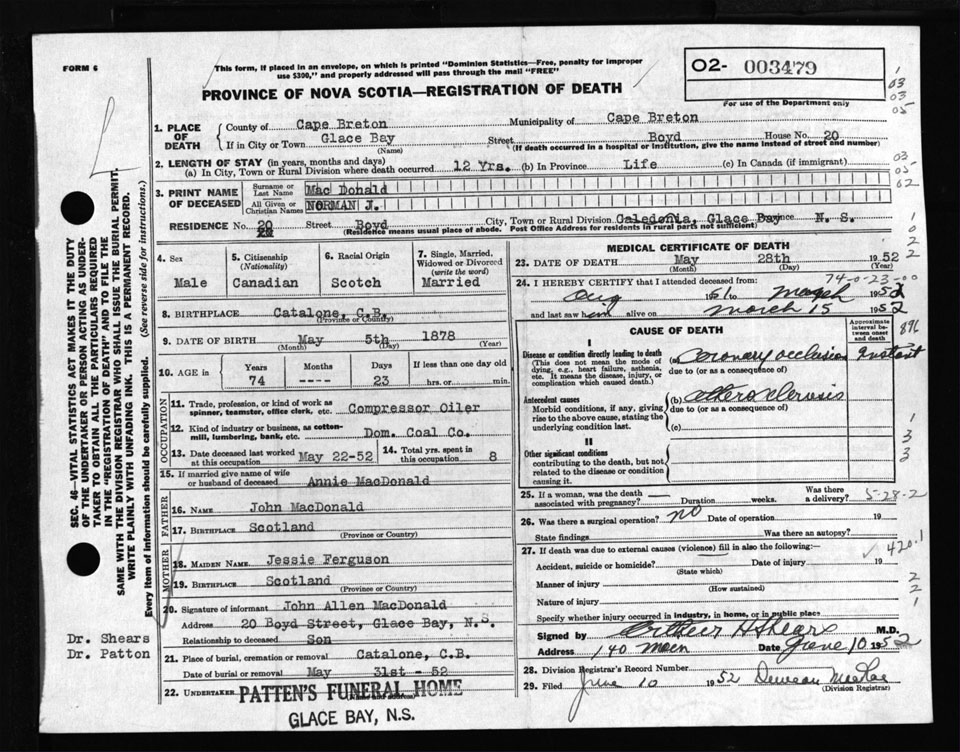 FORM 6
This form, if placed in an envelope, on which is printed "Dominion Statistics—Free, penalty for improper
use $300," and properly addressed will pass through the mail "FREE"
PROVINCE OF NOVA SCOTIA—REGISTRATION OF DEATH
O2- 003479
For use of the Department only
03
03
05
1. PLACE OF DEATH
County of Cape Breton Municipality of Cape Breton
If in City or Town Glace Bay Street Boyd House No. 20
(Name) (If death occurred in a hospital or institution, give the name instead of street and number)
2. LENGTH OF STAY (in years, months and days)
(a) In City, Town or Rural Division where death occurred 12 Yrs. (b) In Province Life (c) In Canada (if immigrant)
03
05
02
3. PRINT NAME OF DECEASED
Surname or Last Name Mac Donald
All Given or Christian Names NORMAN J.
RESIDENCE No. 20 Street Boyd City, Town or Rural Division Caledonia, Glace Bay Province N. S.
(Residence means usual place of abode. Post Office Address for residents in rural parts not sufficient)
4. Sex
Male
5. Citizenship
(Nationality)
Canadian
6. Racial Origin
Scotch
7. Single, Married,
Widowed or Divorced
(write the word)
Married
8. BIRTHPLACE Catalone, C.B.
(Province or Country)
9. DATE OF BIRTH May 5th 1878
(Month) (Day) (Year)
10. AGE in
Years Months Days If less than one day old
74 ---- 23 hrs. or min.
OCCUPATION
11. Trade, profession, or kind of work as
spinner, teamster, office clerk, etc. Compressor Oiler
12. Kind of industry or business, as cotton-
mill, lumbering, bank, etc. Dom. Coal Co.
13. Date deceased last worked
at this occupation May 22-52
14. Total yrs. spent in
this occupation 8
15. If married give name of wife
or husband of deceased Annie MacDonald
FATHER
16. Name John MacDonald
17. Birthplace Scotland
(Province or Country)
MOTHER
18. Maiden Name Jessie Ferguson
19. Birthplace Scotland
(Province or Country)
20. Signature of informant John Allen MacDonald
Address 20 Boyd Street, Glace Bay, N.S.
Relationship to deceased Son
21. Place of burial, cremation or removal Catalone, C.B.
Date of burial or removal May 31st - 52
22. Undertaker PATTEN'S FUNERAL HOME
GLACE BAY, N.S.
MEDICAL CERTIFICATE OF DEATH
23. DATE OF DEATH May 28th 1952
(Month) (Day) (Year)
74-0-23-00
24. I HEREBY CERTIFY that I attended deceased from:
Aug 1951 to March 1952
and last saw him alive on March 15 1952
CAUSE OF DEATH
Approximate
interval be-
tween onset
and death
I
Disease or condition directly leading to death
(This does not mean the mode of
dying, e.g., heart failure, asthenia,
etc. It means the disease, injury, or
complication which caused death.)
(a) Coronary occlusion Instant
due to (or as a consequence of)
Antecedent causes
Morbid conditions, if any, giving
rise to the above cause, stating the
underlying condition last.
(b) atherosclerosis
due to (or as a consequence of)
(c)
II
Other significant conditions
contributing to the death, but not
related to the disease or condition
causing it.
25. If a woman, was the death
associated with pregnancy? Duration weeks. Was there
a delivery? 5-28-2
26. Was there a surgical operation? no Date of operation 19
State findings Was there an autopsy?
27. If death was due to external causes (violence) fill in also the following:—
420.1
Accident, suicide or homicide? Date of injury 19
(State which)
Manner of injury
(How sustained)
Nature of injury
Specify whether injury occurred in industry, in home, or in public place
Signed by Arthur H Shears M.D.
Address 140 Main Date June 10 1952
28. Division Registrar's Record Number
29. Filed June 10 1952
(Division Registrar)
SEC. 46—VITAL STATISTICS ACT MAKES IT THE DUTY
OF THE UNDERTAKER OR PERSON ACTING AS UNDER-
TAKER TO OBTAIN ALL THE PARTICULARS REQUIRED
IN THE "REGISTRATION OF DEATH" AND TO FILE THE
SAME WITH THE DIVISION REGISTRAR WHO SHALL ISSUE THE BURIAL PERMIT.
WRITE PLAINLY WITH UNFADING INK. THIS IS A PERMANENT RECORD.
Every item of information should be carefully supplied. (See reverse side for instructions.)
Dr. Shears
Dr. Patton